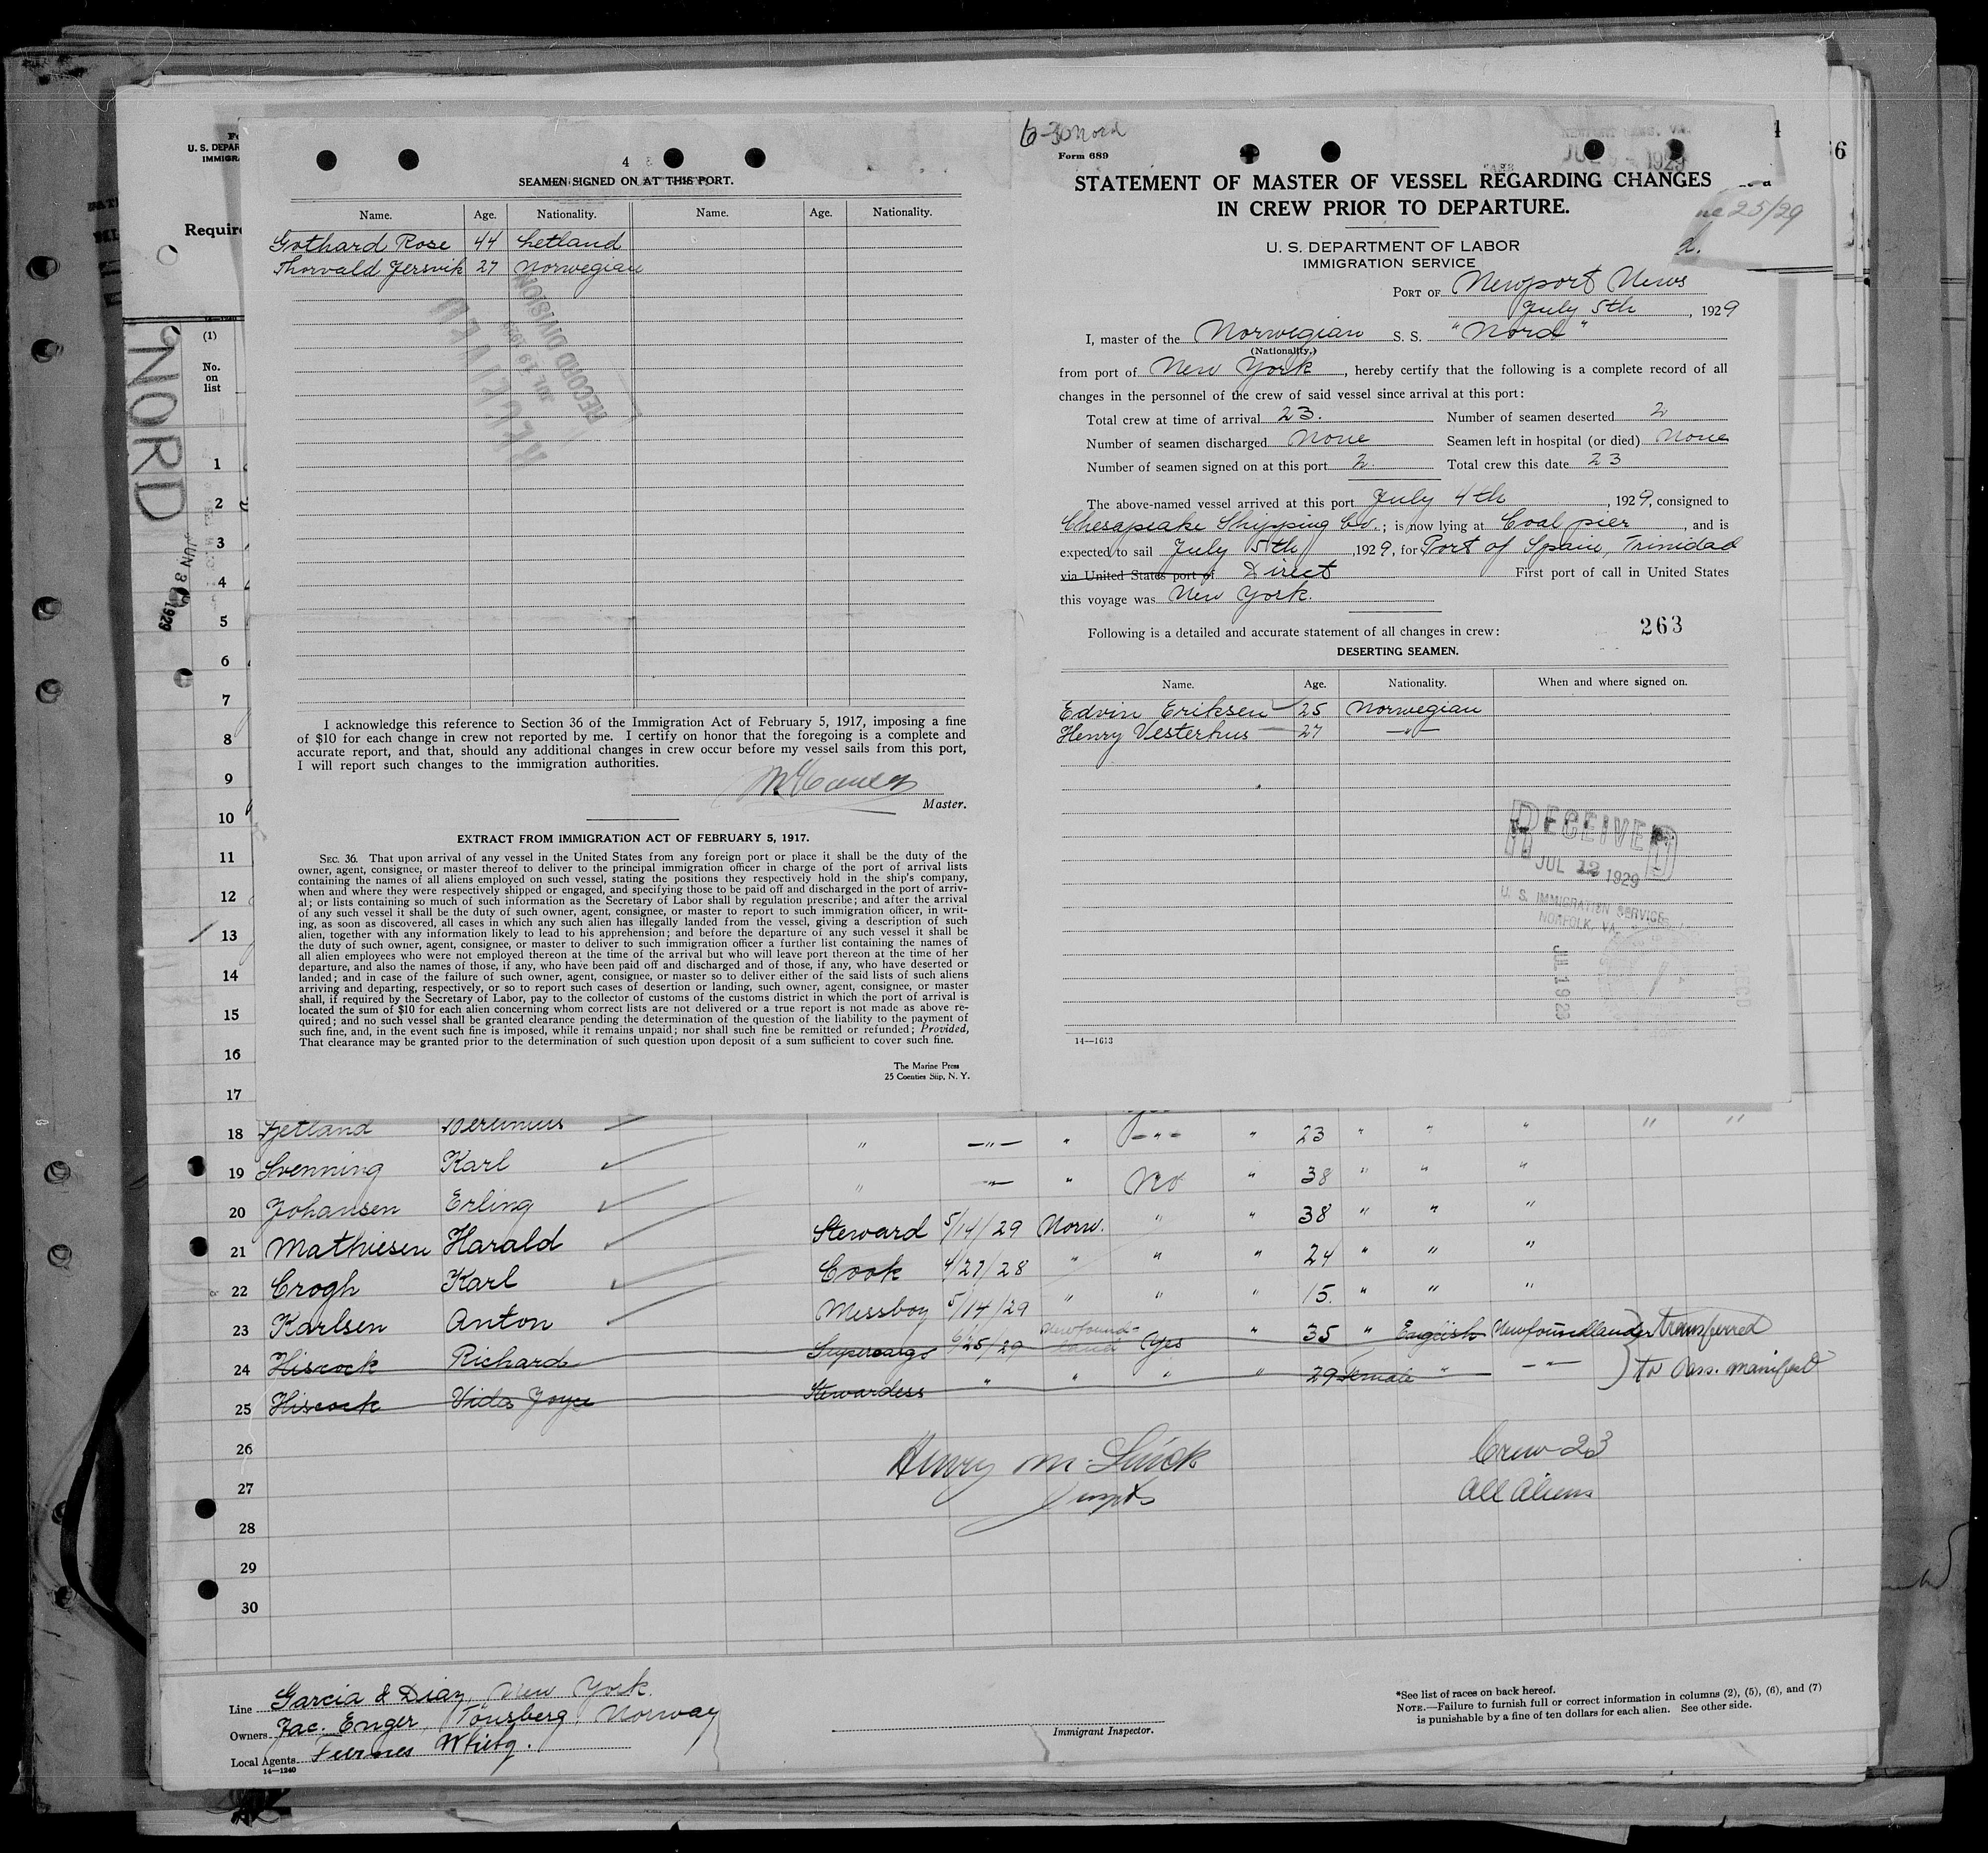 4
SEAMEN SIGNED ON AT THIS PORT.
Name. Age. Nationality. Name. Age. Nationality.
Gothard Rose 44 Letland
Thorvald Jersvik 27 Norwegian
RECORD DIVISION
JUL 19 1929
RECEIVED
I acknowledge this reference to Section 36 of the Immigration Act of February 5, 1917, imposing a fine
of $10 for each change in crew not reported by me. I certify on honor that the foregoing is a complete and
accurate report, and that, should any additional changes in crew occur before my vessel sails from this port,
I will report such changes to the immigration authorities.
Master.
EXTRACT FROM IMMIGRATION ACT OF FEBRUARY 5, 1917.
SEC. 36. That upon arrival of any vessel in the United States from any foreign port or place it shall be the duty of the
owner, agent, consignee, or master thereof to deliver to the principal immigration officer in charge of the port of arrival lists
containing the names of all aliens employed on such vessel, stating the positions they respectively hold in the ship's company,
when and where they were respectively shipped or engaged, and specifying those to be paid off and discharged in the port of arriv-
al; or lists containing so much of such information as the Secretary of Labor shall by regulation prescribe; and after the arrival
of any such vessel it shall be the duty of such owner, agent, consignee, or master to report to such immigration officer, in writ-
ing, as soon as discovered, all cases in which any such alien has illegally landed from the vessel, giving a description of such
alien, together with any information likely to lead to his apprehension; and before the departure of any such vessel it shall be
the duty of such owner, agent, consignee, or master to deliver to such immigration officer a further list containing the names of
all alien employees who were not employed thereon at the time of the arrival but who will leave port thereon at the time of her
departure, and also the names of those, if any, who have been paid off and discharged and of those, if any, who have deserted or
landed; and in case of the failure of such owner, agent, consignee, or master so to deliver either of the said lists of such aliens
arriving and departing, respectively, or so to report such cases of desertion or landing, such owner, agent, consignee, or master
shall, if required by the Secretary of Labor, pay to the collector of customs of the customs district in which the port of arrival is
located the sum of $10 for each alien concerning whom correct lists are not delivered or a true report is not made as above re-
quired; and no such vessel shall be granted clearance pending the determination of the question of the liability to the payment of
such fine, and, in the event such fine is imposed, while it remains unpaid; nor shall such fine be remitted or refunded; Provided,
That clearance may be granted prior to the determination of such question upon deposit of a sum sufficient to cover such fine.
The Marine Press
25 Coenties Slip, N. Y.
6-30 Nord
Form 689
NEWPORT NEWS, VA.
1929
STATEMENT OF MASTER OF VESSEL REGARDING CHANGES
IN CREW PRIOR TO DEPARTURE.
U. S. DEPARTMENT OF LABOR
IMMIGRATION SERVICE
PORT OF Newport News
July 5th, 1929
I, master of the Norwegian S. S. "Nord"
(Nationality.)
from port of New York, hereby certify that the following is a complete record of all
changes in the personnel of the crew of said vessel since arrival at this port:
Total crew at time of arrival 23. Number of seamen deserted 2
Number of seamen discharged None Seamen left in hospital (or died) None
Number of seamen signed on at this port 2. Total crew this date 23
The above-named vessel arrived at this port July 4th, 1929, consigned to
Chesapeake Shipping Co.; is now lying at Coal pier, and is
expected to sail July 5th, 1929, for Port of Spain, Trinidad
via United States port of Direct First port of call in United States
this voyage was New York.
Following is a detailed and accurate statement of all changes in crew: 263
DESERTING SEAMEN.
Name. Age. Nationality. When and where signed on.
Edvin Eriksen 25 Norwegian
Henry Vesterhus 27 —"—
RECEIVED
JUL 12 1929
U. S. IMMIGRATION SERVICE
NORFOLK, VA.
14—1613
ne 25/29
6
U. S. DEPAR
IMMIGRA
Require
NORD
JUN 3 1929
(1)
No.
on
list
1
2
3
4
5
6
7
8
9
10
11
12
13
14
15
16
17
18 " —"— " —"— " 23 " " " " "
19 Svenning Karl " —"— " No " 38 " " "
20 Johansen Erling
21 Mathiesen Harald Steward 5/14/29 Norw. " " 38 " " "
22 Crogh Karl Cook 4/27/28 " " " 24 " " "
23 Karlsen Anton Messboy 5/14/29 " " " 15. " " "
24 Hiscock Richard Supercargo 6/25/29 Newfoundland Yes " 35 " English Newfoundlander transferred
25 Hiscock Vida Joyce Stewardess " " " " 29 female " —"— to Pass. manifest
26
27
28
29
30
Crew 23
All Aliens
Line Garcia & Diaz, New York.
Owners Jac. Enger, Tonsberg, Norway
Local Agents Furness Withy.
14—1240
Immigrant Inspector.
*See list of races on back hereof.
NOTE.—Failure to furnish full or correct information in columns (2), (5), (6), and (7)
is punishable by a fine of ten dollars for each alien. See other side.